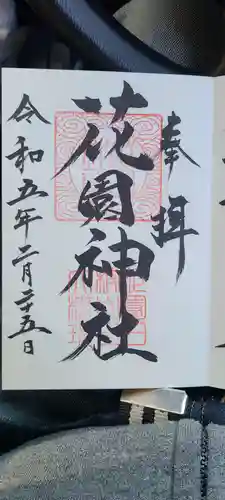 奉拝
花園神社
令和五年二月二十五日